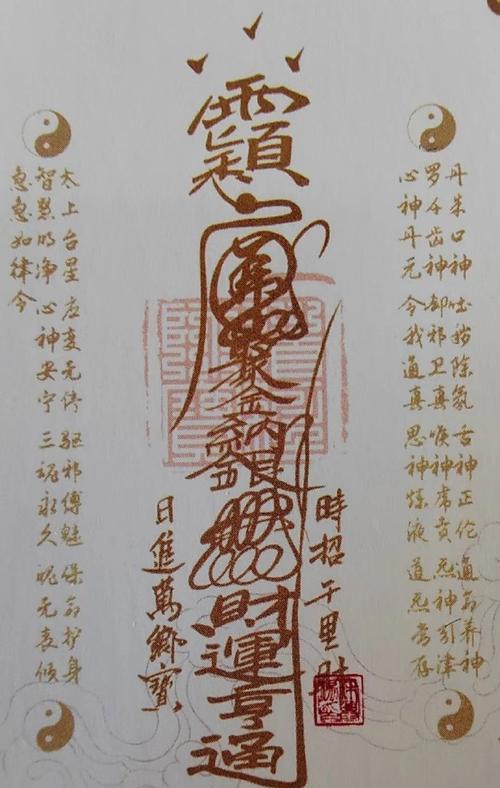 丹朱口神 吐秽除氛 舌神正伦 通命养神
罗千齿神 却邪卫真 喉神虎贲 炁神引津
心神丹元 令我通真 思神炼液 道炁常存
時招千里財
聚金納銀
財運亨通
日進萬鄉寶
太上台星 应变无停 驱邪缚魅 保命护身
智慧明净 心神安宁 三魂永久 魄无丧倾
急急如律令